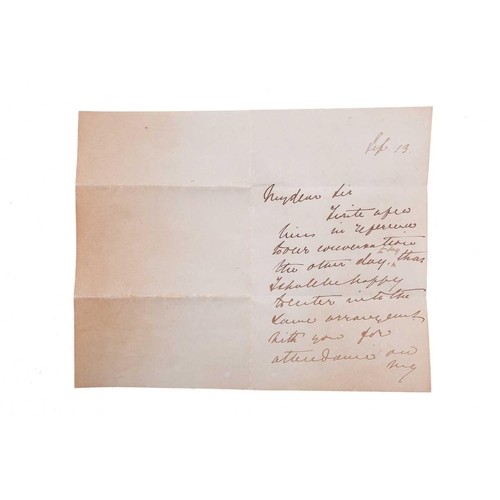 Sep 13
My dear Sir
I write a few
lines in reference
to our conversation
the other day, to say that
I shall be happy
to enter into the
same arrangement
with you for
attendance on
my